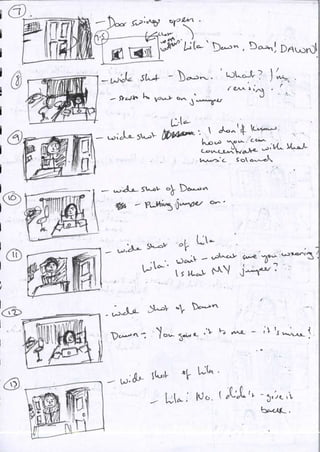 7
- Door swings open.
7.5
Lila "Dawn, Dawn! DAWN!
8
- wide shot - Dawn. 'What? I'm
revising.'
- starts to put on jumper
9
- wide shot Lila : I don't know
how you can
concentrate with that
music so loud
10
- wide shot of Dawn
- Putting jumper on.
11
- wide shot of Lila
Lila: Wait - what are you wearing?
Is that MY jumper?
12
- wide shot of Dawn
Dawn - You gave it to me - it's mine!
13
- wide shot of Lila.
- Lila: No. I didn't - give it
back.